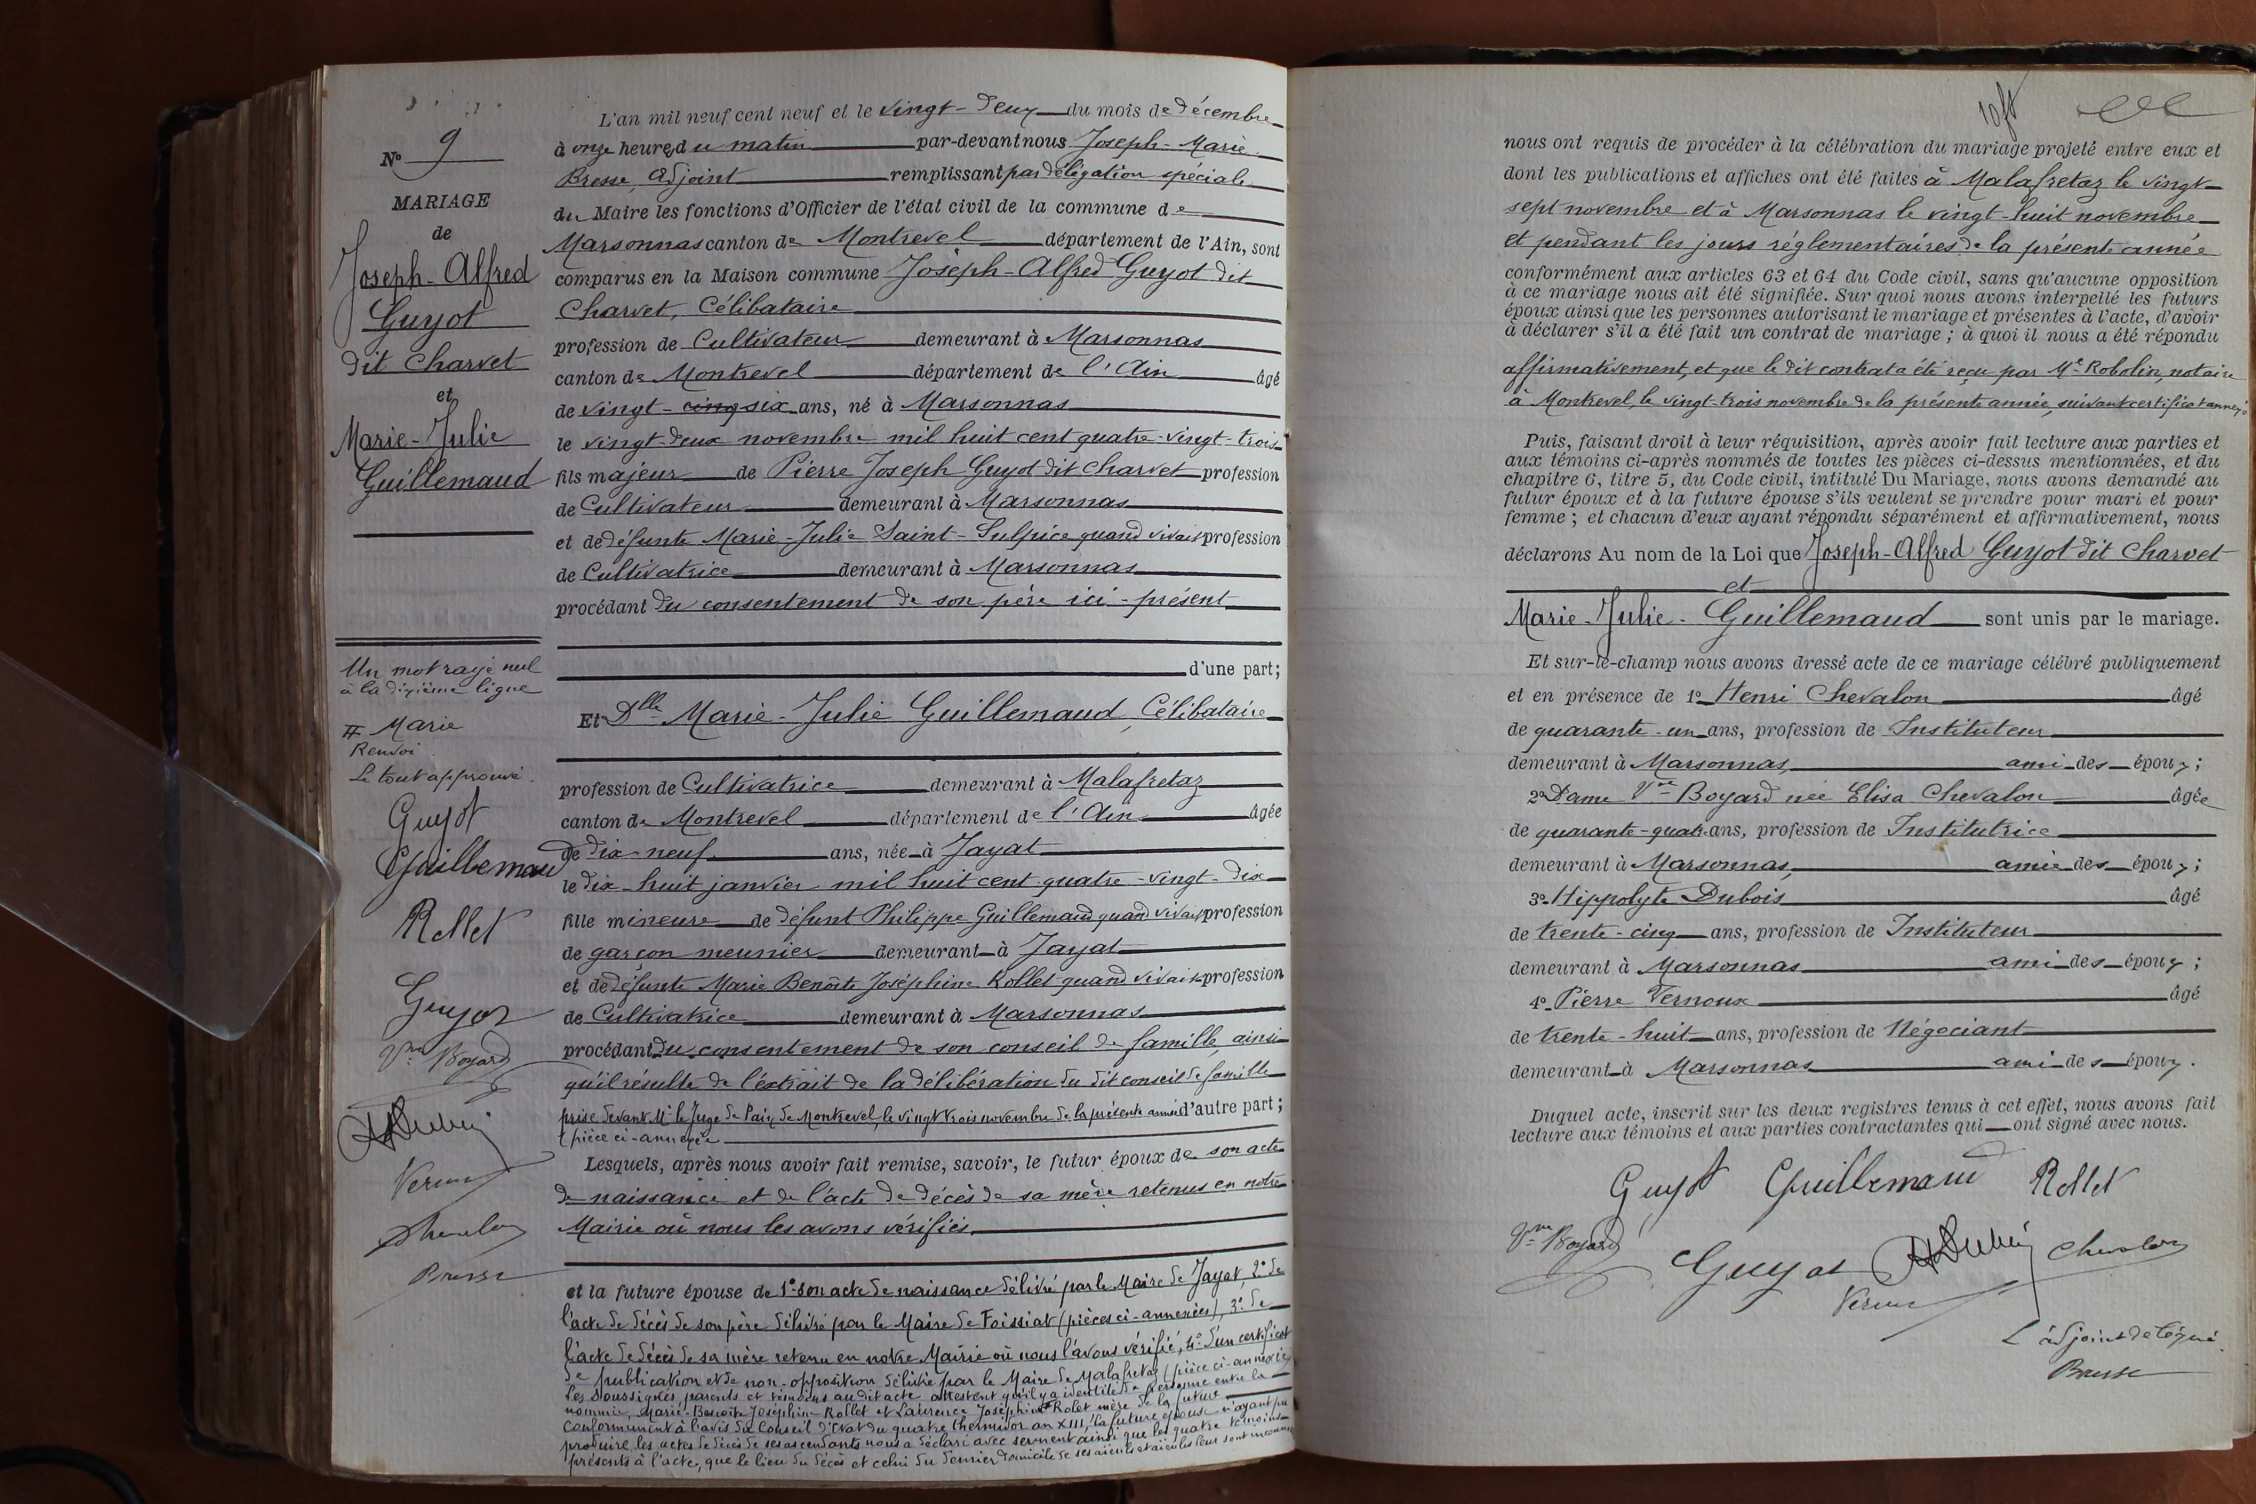 N° 9
MARIAGE
de
Joseph-Alfred
Guyot
dit Charvet
et
Marie-Julie
Guillemaud
Un mot rayé nul
à la dixième ligne
# Marie
Renvoi
Le tout approuvé.
Guyot
Guillemaud
Rollet
Guyot
Vve Boyard
Dubois
Vernoux
Chevalon
Bresse
L'an mil neuf cent neuf et le vingt-deux du mois de décembre
à onze heures du matin par-devant nous Joseph-Marie
Bresse, adjoint remplissant par délégation spéciale
du Maire les fonctions d'Officier de l'état civil de la commune de
Marsonnas canton de Montrevel département de l'Ain, sont
comparus en la Maison commune Joseph-Alfred Guyot dit
Charvet, Célibataire
profession de Cultivateur demeurant à Marsonnas
canton de Montrevel département de l'Ain âgé
de vingt-cinq six ans, né à Marsonnas
le vingt-deux novembre mil huit cent quatre-vingt-trois
fils majeur de Pierre Joseph Guyot dit Charvet profession
de Cultivateur demeurant à Marsonnas
et de défunte Marie-Julie Saint-Sulpice quand vivait profession
de Cultivatrice demeurant à Marsonnas
procédant du consentement de son père ici-présent
d'une part;
Et Dlle Marie-Julie Guillemaud, Célibataire
profession de Cultivatrice demeurant à Malafretaz
canton de Montrevel département de l'Ain âgée
de dix-neuf ans, née à Jayat
le dix-huit janvier mil huit cent quatre-vingt-dix
fille mineure de défunt Philippe Guillemaud quand vivait profession
de garçon meunier demeurant à Jayat
et de défunte Marie Benoîte Joséphine Rollet quand vivait profession
de Cultivatrice demeurant à Marsonnas
procédant du consentement de son conseil de famille, ainsi
qu'il résulte de l'extrait de la délibération du dit conseil de famille
prise devant Mr le Juge de Paix de Montrevel, le vingt trois novembre de la présente année d'autre part;
(pièce ci-annexée
Lesquels, après nous avoir fait remise, savoir, le futur époux de son acte
de naissance et de l'acte de décès de sa mère retenus en notre
Mairie où nous les avons vérifiés
et la future épouse de 1° son acte de naissance délivré par le Maire de Jayat, 2° de
l'acte de décès de son père délivré par le Maire de Foissiat (pièces ci-annexées), 3° de
l'acte de décès de sa mère retenu en notre Mairie où nous l'avons vérifié, 4° d'un certificat
de publication et de non-opposition délivré par le Maire de Malafretaz (pièce ci-annexée)
Les soussignés, parents et témoins au dit acte attestent qu'il y a identité de personne entre la
nommée, Marie-Benoîte Joséphine Rollet et Laurence Joséphine # Rolet mère de la future
Conformément à l'avis du Conseil d'Etat du quatre thermidor an XIII, la future épouse n'ayant pu
produire les actes de décès de ses ascendants nous a déclaré avec serment ainsi que les quatre témoins
présents à l'acte, que le lieu du décès et celui du dernier domicile de ses aïeuls et aïeules leur sont inconnus
nous ont requis de procéder à la célébration du mariage projeté entre eux et
dont les publications et affiches ont été faites à Malafretaz le vingt-
sept novembre et à Marsonnas le vingt-huit novembre
et pendant les jours réglementaires de la présente année
conformément aux articles 63 et 64 du Code civil, sans qu'aucune opposition
à ce mariage nous ait été signifiée. Sur quoi nous avons interpellé les futurs
époux ainsi que les personnes autorisant le mariage et présentes à l'acte, d'avoir
à déclarer s'il a été fait un contrat de mariage; à quoi il nous a été répondu
affirmativement, et que le dit contrat a été reçu par Me Robolin, notaire
à Montrevel, le vingt-trois novembre de la présente année, suivant certificat annexé
Puis, faisant droit à leur réquisition, après avoir fait lecture aux parties et
aux témoins ci-après nommés de toutes les pièces ci-dessus mentionnées, et du
chapitre 6, titre 5, du Code civil, intitulé Du Mariage, nous avons demandé au
futur époux et à la future épouse s'ils veulent se prendre pour mari et pour
femme; et chacun d'eux ayant répondu séparément et affirmativement, nous
déclarons Au nom de la Loi que Joseph-Alfred Guyot dit Charvet
et
Marie-Julie-Guillemaud sont unis par le mariage.
Et sur-le-champ nous avons dressé acte de ce mariage célébré publiquement
et en présence de 1° Henri Chevalon âgé
de quarante-un ans, profession de Instituteur
demeurant à Marsonnas, ami des époux;
2° Dame Vve Boyard née Elisa Chevalon âgée
de quarante-quatre ans, profession de Institutrice
demeurant à Marsonnas, amie des époux;
3° Hippolyte Dubois âgé
de trente-cinq ans, profession de Instituteur
demeurant à Marsonnas ami des époux;
4° Pierre Vernoux âgé
de trente-huit ans, profession de Négociant
demeurant à Marsonnas ami des époux.
Duquel acte, inscrit sur les deux registres tenus à cet effet, nous avons fait
lecture aux témoins et aux parties contractantes qui ont signé avec nous.
Guyot Guillemaud Rollet
Vve Boyard Guyot Dubois Chevalon
Vernoux
L'adjoint délégué
Bresse